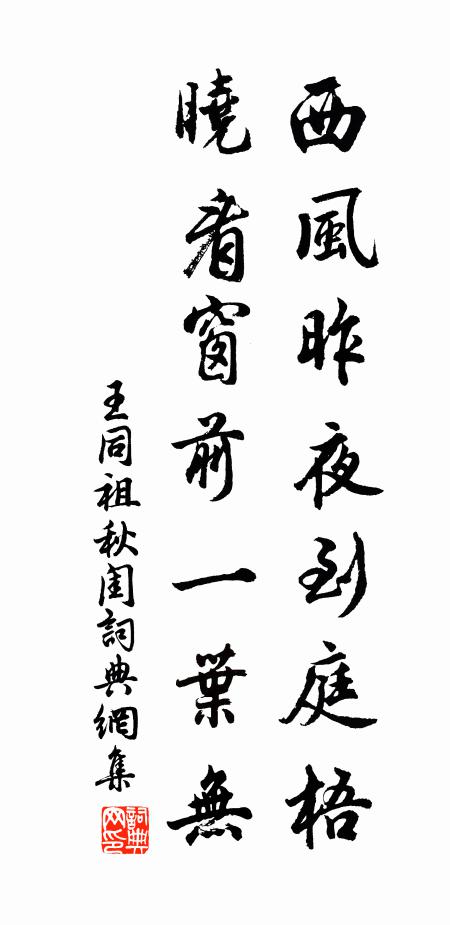 西風昨夜到庭梧
曉看窗前一葉無
王同祖秋閨詞典網集
詞典网印